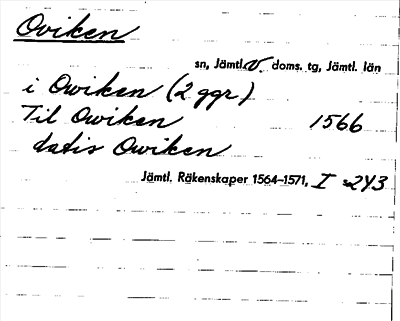 Oviken
sn, Jämtl. v. doms. tg, Jämtl. län
i Owiken (2 ggr)
Til Owiken 1566
datis Owiken
Jämtl. Räkenskaper 1564–1571, I s. 243